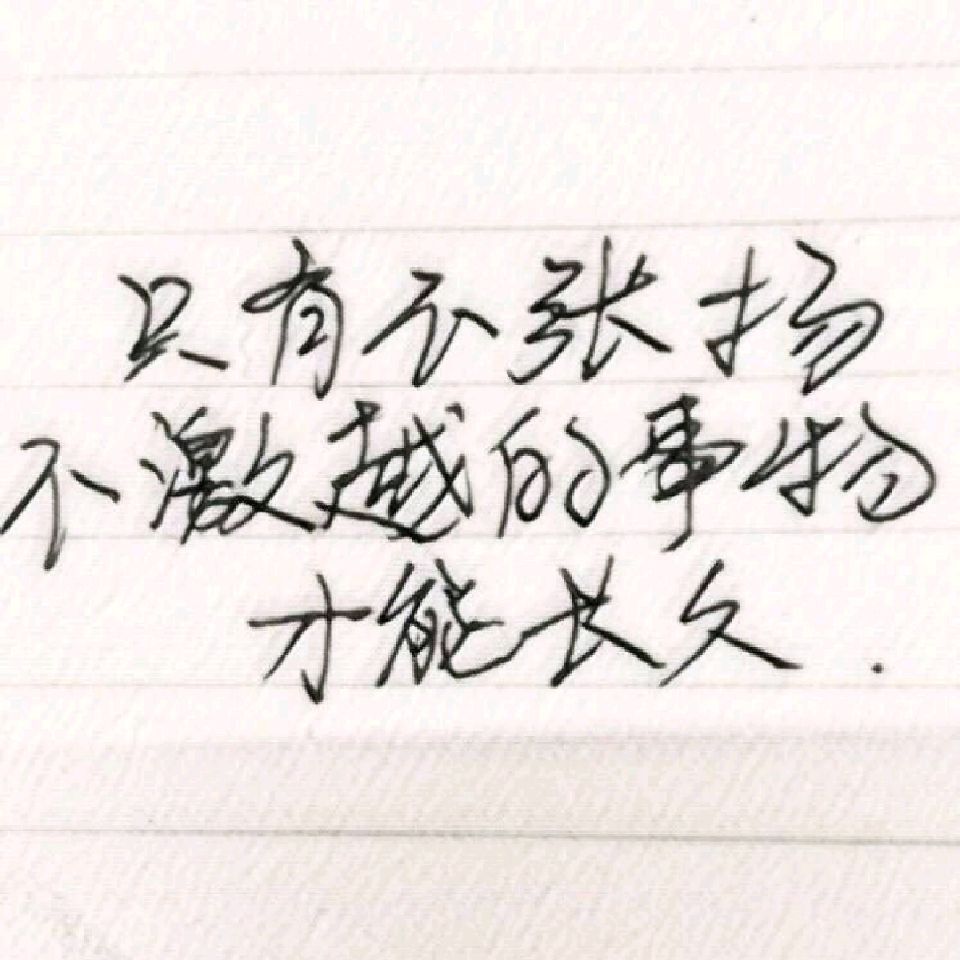 只有不张扬
不激越的事物
才能长久.